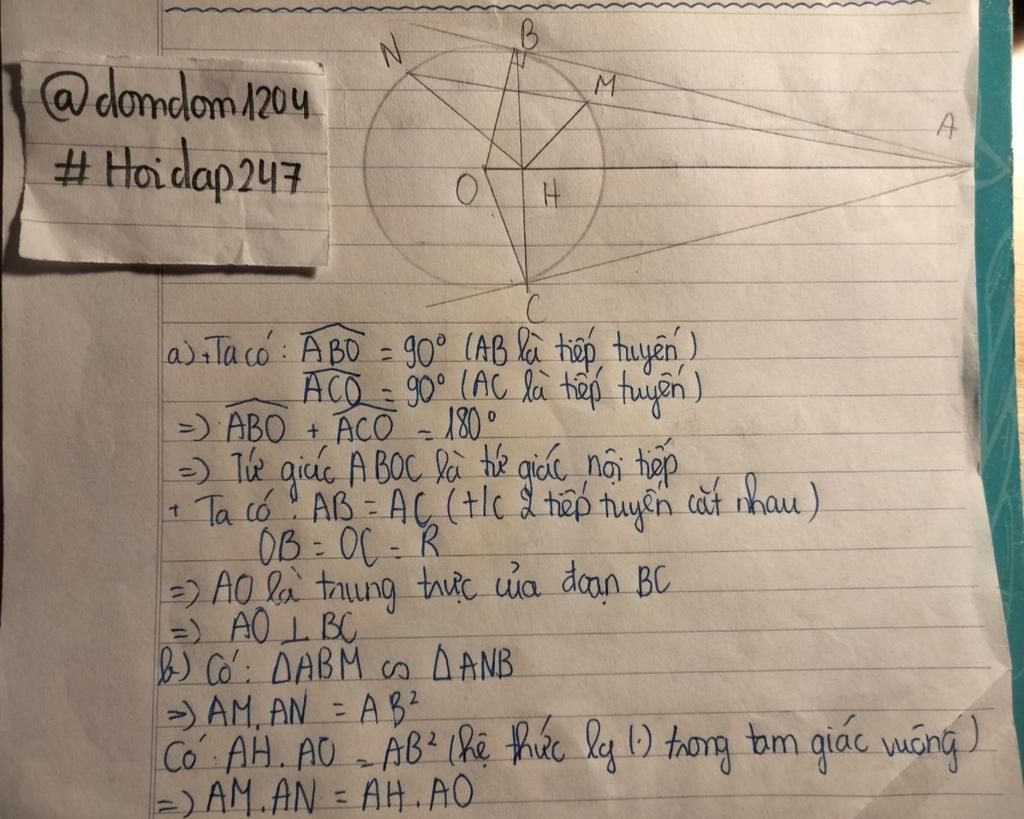 @domdom1204
# Hoidap247
N
B
M
A
O
H
C
a) + Ta có : ABO = 90° (AB là tiếp tuyến)
ACO = 90° (AC là tiếp tuyến)
=> ABO + ACO = 180°
=> Tứ giác ABOC là tứ giác nội tiếp
+ Ta có : AB = AC (t/c 2 tiếp tuyến cắt nhau)
OB = OC = R
=> AO là trung trực của đoạn BC
=> AO ⊥ BC
b) Có : ΔABM ∽ ΔANB
=> AM. AN = AB²
Có : AH. AO = AB² (hệ thức lg (·) trong tam giác vuông)
=> AM. AN = AH. AO